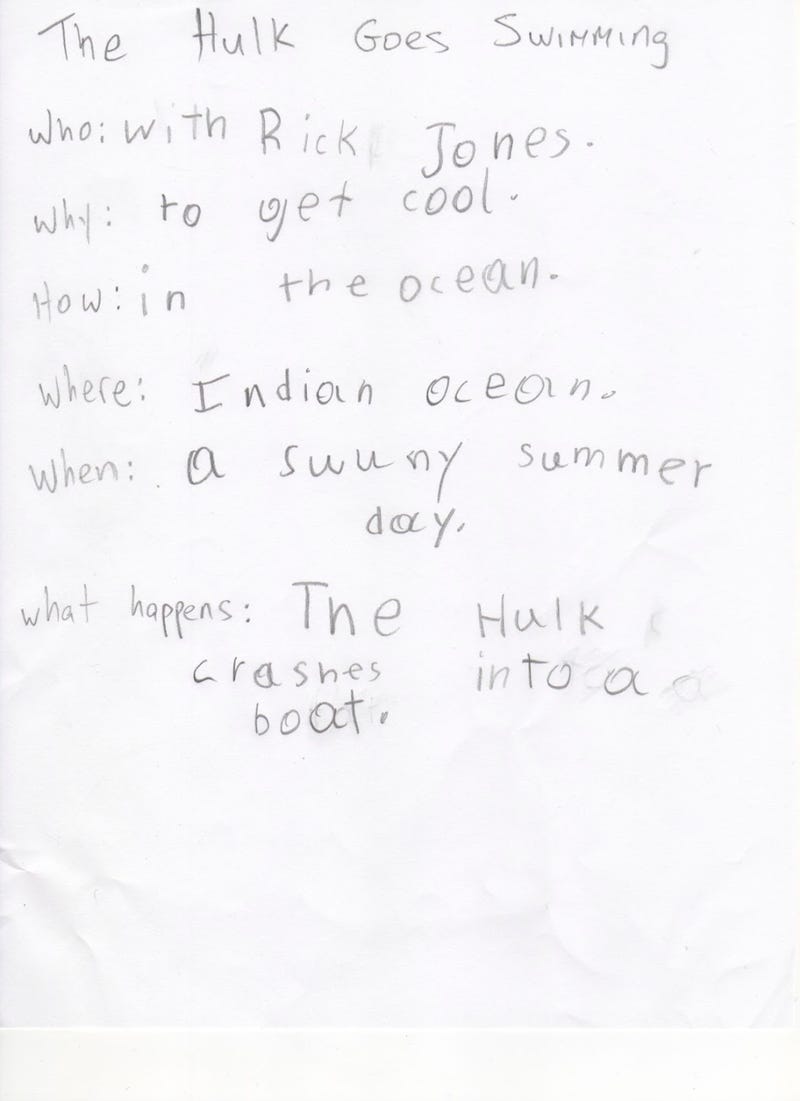 The Hulk Goes Swimming
who: with Rick Jones.
why: to get cool.
How: in the ocean.
where: Indian ocean.
when: a suuny summer
day.
what happens: The Hulk
crashes into a
boat.